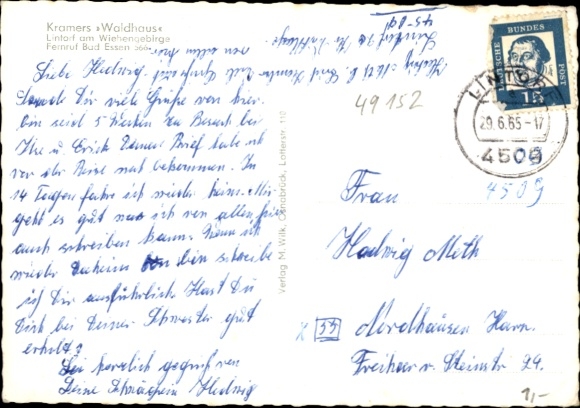 Kramers »Waldhaus«
Lintorf am Wiehengebirge
Fernruf Bad Essen
Liebe Hedwig
Sende Dir viele Grüße von hier.
Bin seid 5 Wochen zu Besuch bei
Ilse u. Erich Deinen Brief habe ich
vor der Reise noch bekommen. In
14 Tagen fahre ich wieder heim. Mir
geht es gut was ich von allen hier
auch schreiben kann. Wenn ich
wieder daheim bin schreibe
ich Dir ausführlich Hast Du
Dich bei Deiner Schwester gut
erholt?
Sei herzlich gegrüßt von
Deine Schwägerin Hedwig
Verlag M. Wilk, Osnabrück, Lotterstr. 110
49152
DEUTSCHE BUNDESPOST
15
LINTORF
29.6.65-17
4509
4509
Frau
Hedwig Meth
x 55 Nordhausen Harz.
Freiherr v. Steinstr 29.
1,-